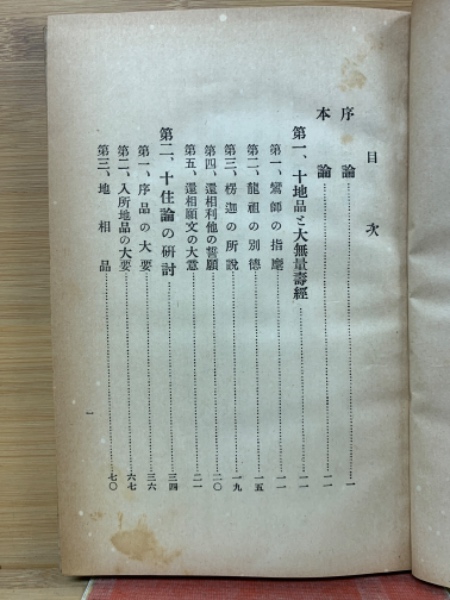 目次
序論……一
本論……一一
第一、十地品と大無量壽經……一一
第一、鸞師の指麾……一一
第二、龍祖の別德……一五
第三、楞迦の所說……一九
第四、還相利他の誓願……二〇
第五、還相願文の大意……二一
第二、十住論の硏討……三四
第一、序品の大要……三六
第二、入所地品の大要……六七
第三、地相品……七〇